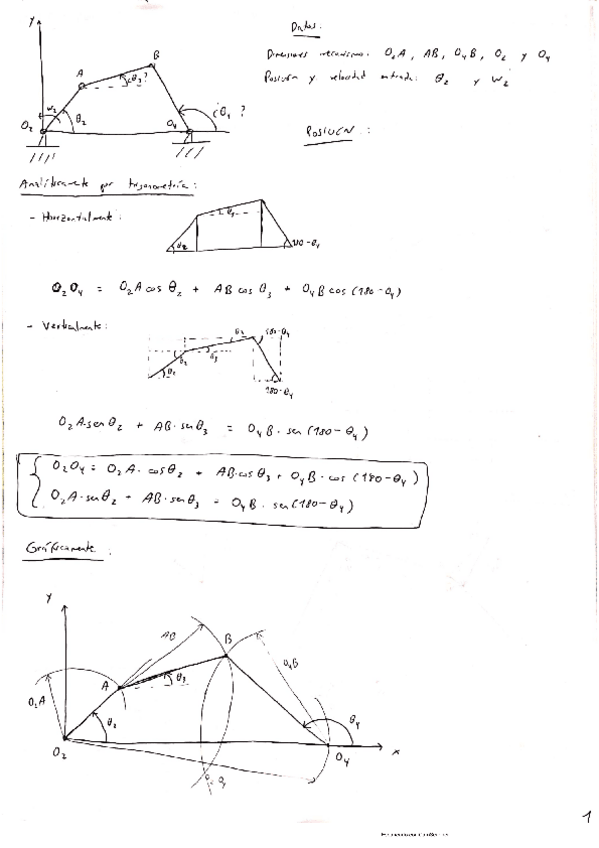 Datos:
Dimensiones mecanismo: O2A, AB, O4B, O2 y O4
Posición y velocidad entrada: θ2 y w2
y
A
B
¿θ3?
w2
θ2
O2
O4
¿θ4?
Posición:
Analíticamente por trigonometría:
- Horizontalmente:
θ3
θ2
180-θ4
O2O4 = O2A cos θ2 + AB cos θ3 + O4B cos (180-θ4)
- Verticalmente:
θ2
180-θ4
θ2
θ3
θ2
180-θ4
O2A·sen θ2 + AB·sen θ3 = O4B · sen (180-θ4)
O2O4 = O2A · cos θ2 + AB·cos θ3 + O4B · cos (180-θ4)
O2A·sen θ2 + AB·sen θ3 = O4B · sen (180-θ4)
Gráficamente:
y
AB
B
O4B
A
θ3
O2A
θ2
θ4
O2
O4
x
1